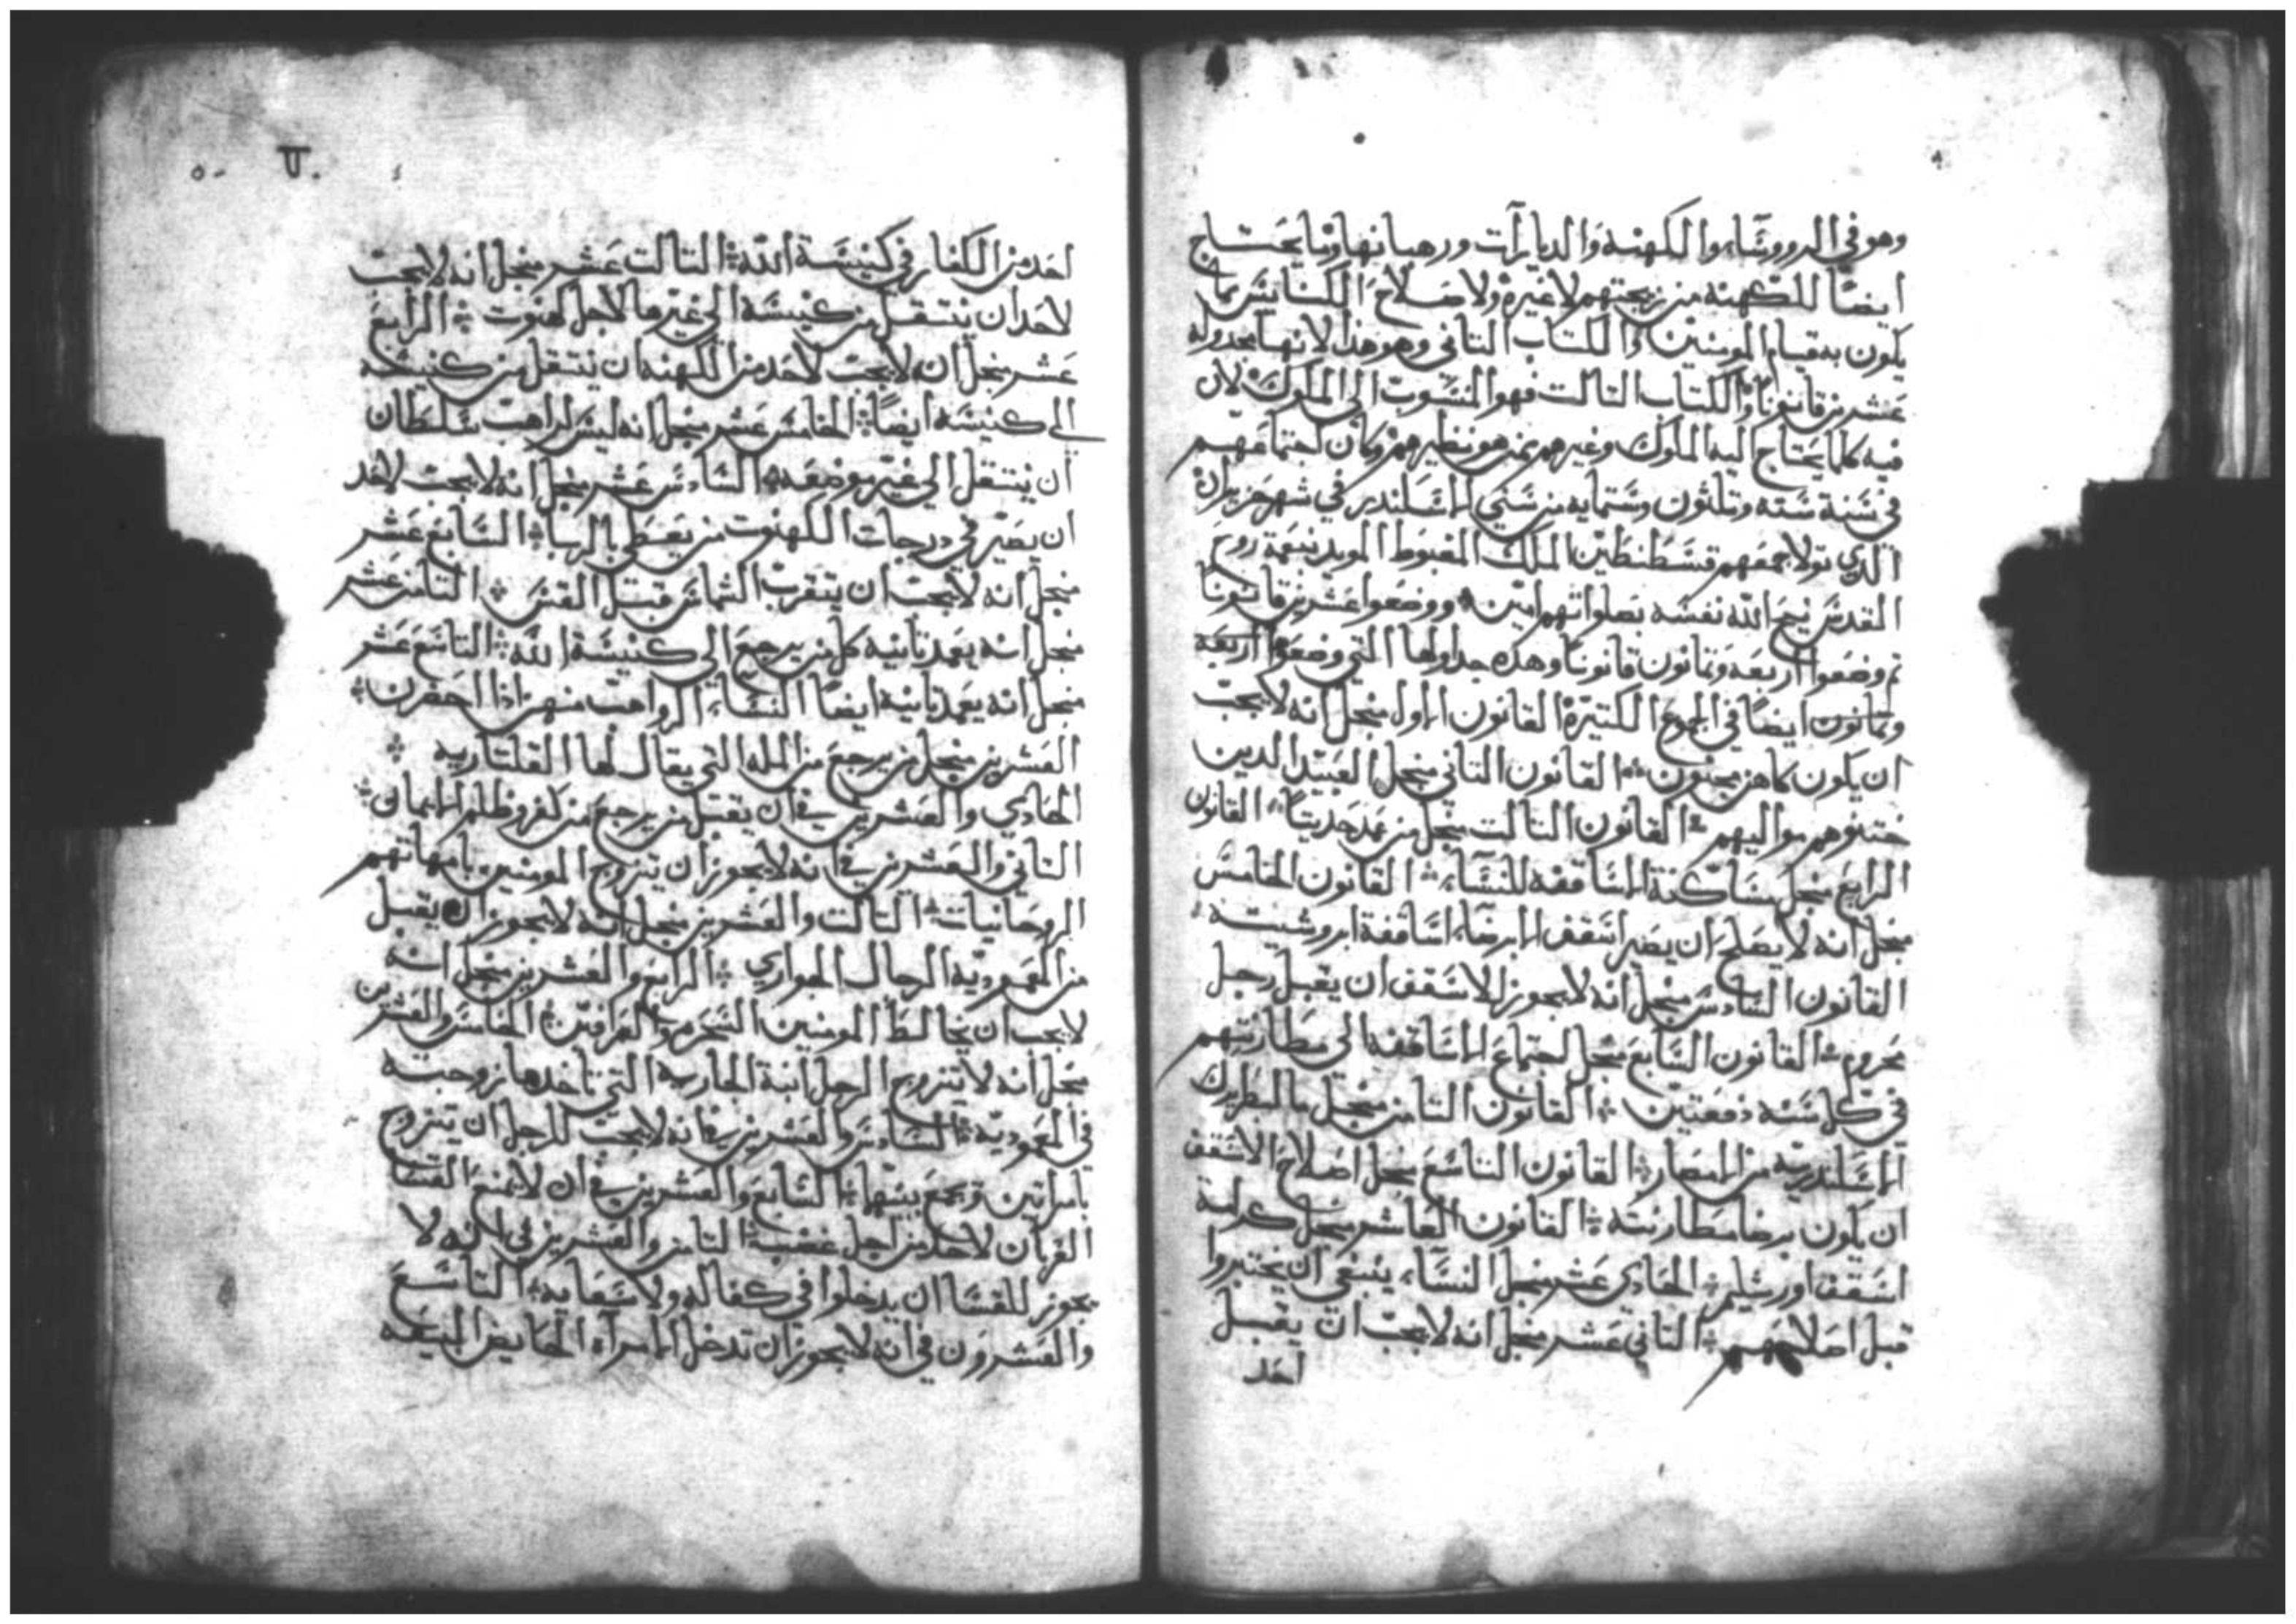 وهو في الرووساء والكهنة والديارات ورهبانها وما يحتاج
ايضًا للكهنه من زيجتهم لا غيره ولا صلاح الكنايس بما
يكون به قيام المومنين والكتاب التاني وهو هذا لانها بجدوله
عشرين قانونًا والكتاب التالت فهو المنسوب الى الملوك لان
فيه كلما يحتاج اليه الملوك وغيرهم ممن هو نظيرهم وكان اجتماعهم
في سنة سته وتلثون وستمايه من سني الاسكندر في شهر حزيران
الذي تولا جمعهم قسطنطين الملك المغبوط المويد بنعمة روح
القدس نيح الله نفسه بصلواتهم امين ووضعوا عشرين قانونًا
تم وضعوا اربعه وتمانون قانونًا وهذه جداولها التي وضعوا اربعة
وتمانون ايضًا في الجموع الكتيرة القانون الاول منجل انه لا يجب
ان يكون كاهن مجنون القانون التاني منجل العبيد الدين
ختنوهم مواليهم القانون التالت منجل من عمد حديتًا القانون
الرابع منجل مساكنة الاساقفه للنساء القانون الخامس
منجل انه لا يصلح ان يصير اسقف الا برضاء اساقفة ابروشيته
القانون السادس منجل انه لا يجوز للاسقف ان يقبل رجل
محروم القانون السابع منجل اجتماع الاساقفه الي مطارنتهم
في كل سنه دفعتين القانون التامن منجل ما لبطريرك
الاسكندرية من الامصار القانون التاسع منجل اصلاح الاسقف
ان يكون برضا مطارنته القانون العاشر منجل كرامة
اسقف اورشليم الحادي عشر منجل النساء ينبغي ان يختبروا
قبل اصلاحهم التاني عشر منجل انه لا يجب ان يقبل
احد
احد من الكفار في كنيسة الله التالت عشر منجل انه لا يجب
لاحد ان ينتقل من كنيسة الي غيرها لاجل كهنوت الرابع
عشر منجل ان لا يجب لاحد من الكهنه ان ينتقل من كنيسه
الي كنيسه ايضًا الخامس عشر منجل انه ليس لراهب سلطان
ان ينتقل الي غير موضعه السادس عشر منجل انه لا يجب لاحد
ان يصير في درجات الكهنوت من يعطي بالربا السابع عشر
منجل انه لا يجب ان يتقرب الشماس قبل القس التامن عشر
منجل انه يعمد تانيه كل من يرجع الى كنيسة الله التاسع عشر
منجل انه يعمد تانية ايضًا النساء الرواهب منهن اذا احضرن
العشرين منجل من يرجع من المله التي يقال لها القلتاريه
الحادي والعشرين في ان يقبل من يرجع من كفر وظلم الايمان
التاني والعشرين في انه لا يجوز ان يتزوج المومنين بامهاتهم
الروحانيات التالت والعشرين منجل انه لا يجوز ان يقبل
من المعموديه الرجال الجواري الرابع والعشرين منجل انه
لا يجب ان يخالط المومنين السحره والعرافين الخامس والعشرين
منجل انه لا يتزوج الرجل ابنة الجاريه التي تاخدها زوجته
في المعموديه السادس والعشرين في انه لا يجب للرجل ان يتزوج
بامراتين ويجمع بينهما السابع والعشرين في ان لا يمنع القسا
القربان لاحد من اجل غضب التامن والعشرين في انه لا
يجوز للقسا ان يدخلوا في كفاله ولا سعايه التاسع
والعشرون في انه لا يجوز ان تدخل الامراه الحايض البيعه